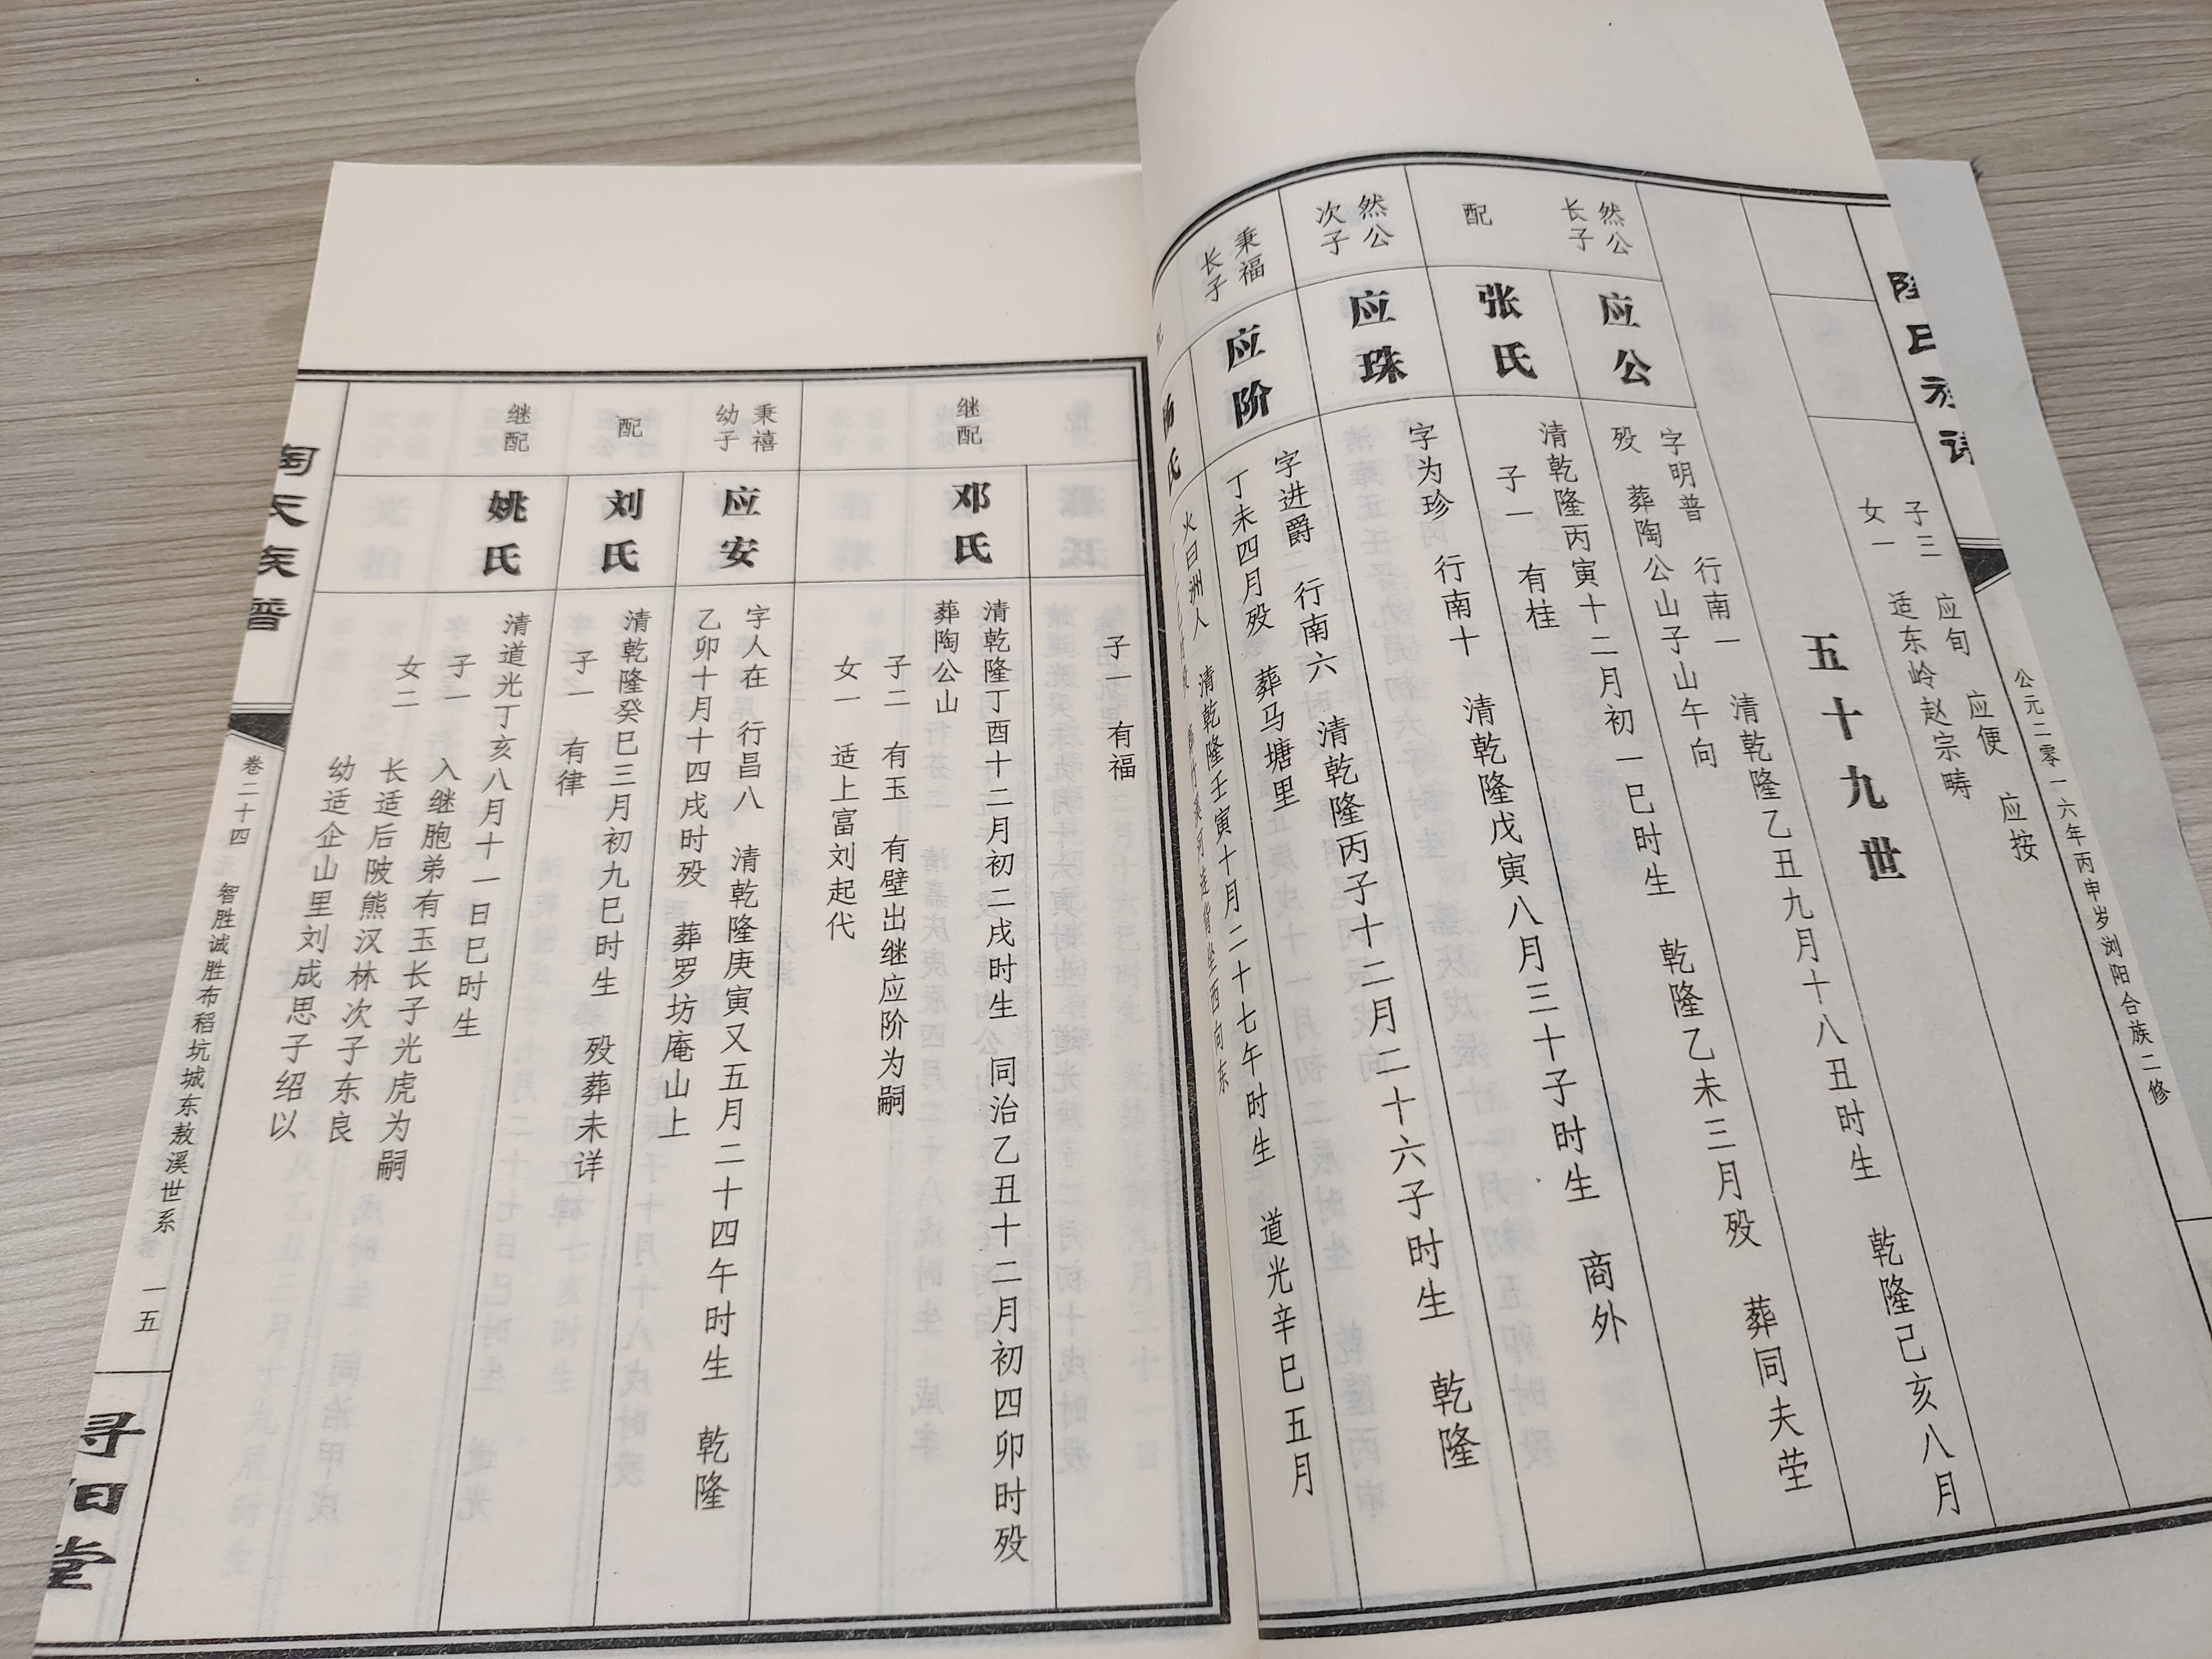 公元二零一六年丙申岁浏阳合族二修
子三 应旬 应便 应按
女一 适东岭赵宗畴
五十九世
然公
长子
应公
字明普 行南一 清乾隆乙丑九月十八丑时生 乾隆己亥八月
殁 葬陶公山子山午向
配
张氏
清乾隆丙寅十二月初一巳时生 乾隆乙未三月殁 葬同夫茔
子一 有桂
然公
次子
应珠
字为珍 行南十 清乾隆戊寅八月三十子时生 商外
秉福
长子
应阶
字进爵 行南六 清乾隆丙子十二月二十六子时生 乾隆
丁未四月殁 葬马塘里
清乾隆壬寅十月二十七午时生 道光辛巳五月
子一 有福
继配
邓氏
清乾隆丁酉十二月初二戌时生 同治乙丑十二月初四卯时殁
葬陶公山
子二 有玉 有壁出继应阶为嗣
女一 适上富刘起代
秉禧
幼子
应安
字人在 行昌八 清乾隆庚寅又五月二十四午时生 乾隆
乙卯十月十四戌时殁 葬罗坊庵山上
配
刘氏
清乾隆癸巳三月初九巳时生 殁葬未详
子一 有律
继配
姚氏
清道光丁亥八月十一日巳时生
子一 入继胞弟有玉长子光虎为嗣
女二 长适后陂熊汉林次子东良
幼适企山里刘成思子绍以
卷二十四 智胜诚胜布稻坑城东敖溪世系 一五